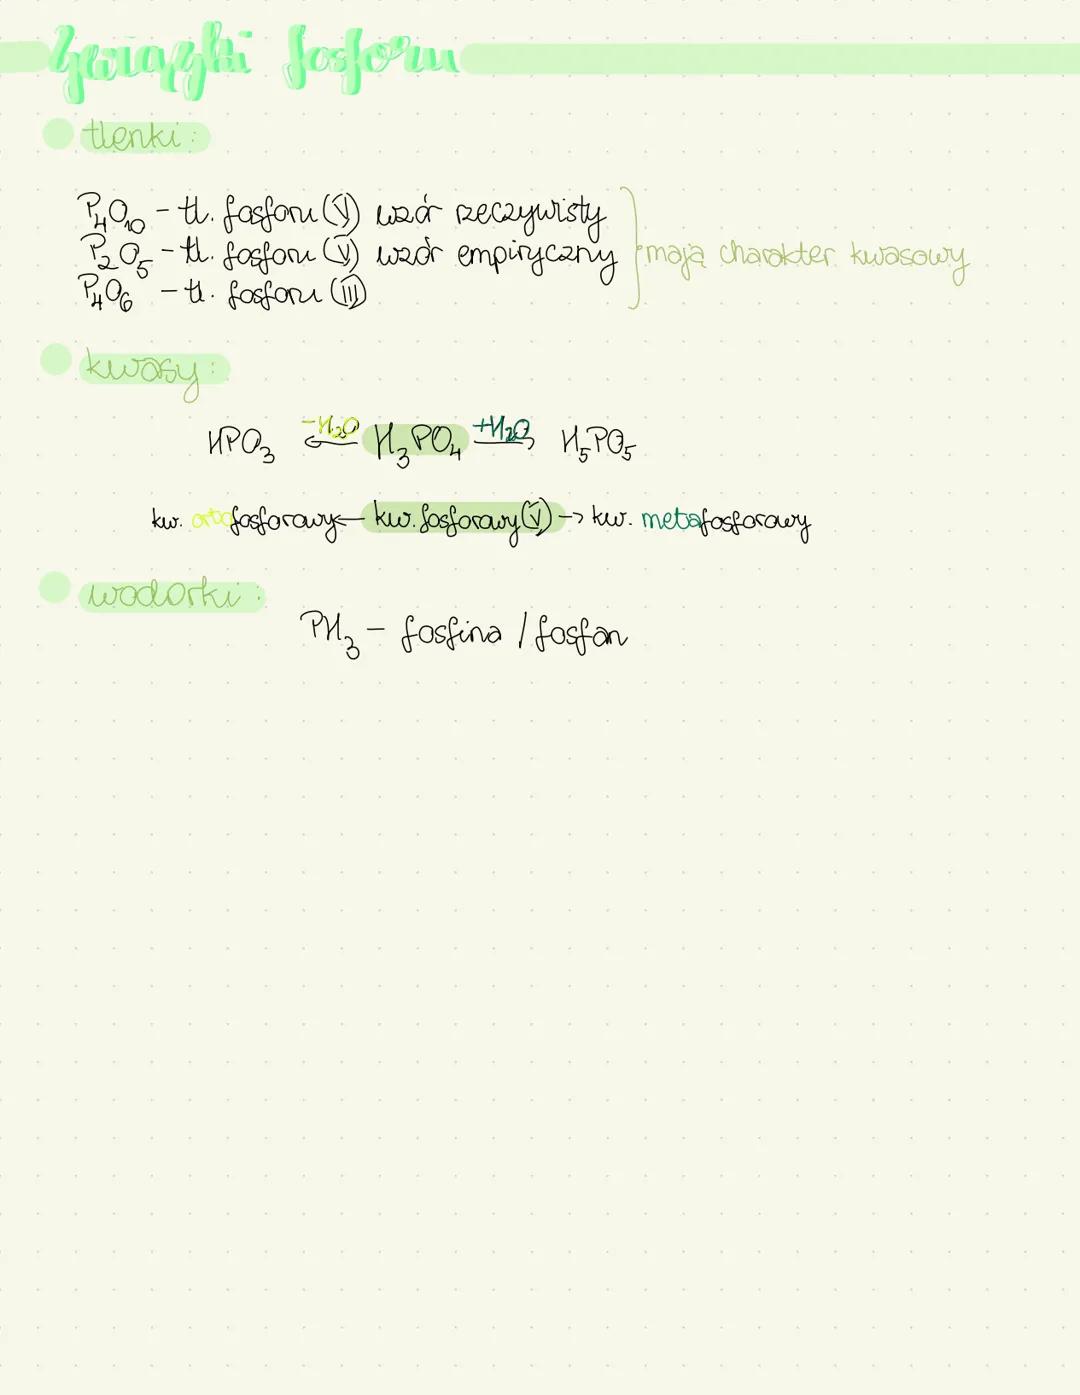 Związki fosforu
tlenki:
P₄O₁₀ - tl. fosforu (V) wzór rzeczywisty
P₂O₅ - tl. fosforu (V) wzór empiryczny
P₄O₆ - tl. fosforu (III)
mają charakter kwasowy
kwasy:
HPO₃ ←-H₂O H₃PO₄ +H₂O→ H₅PO₅
kw. ortofosforowy ← kw. fosforowy (V) → kw. metafosforowy
wodorki:
PH₃ - fosfina / fosfan